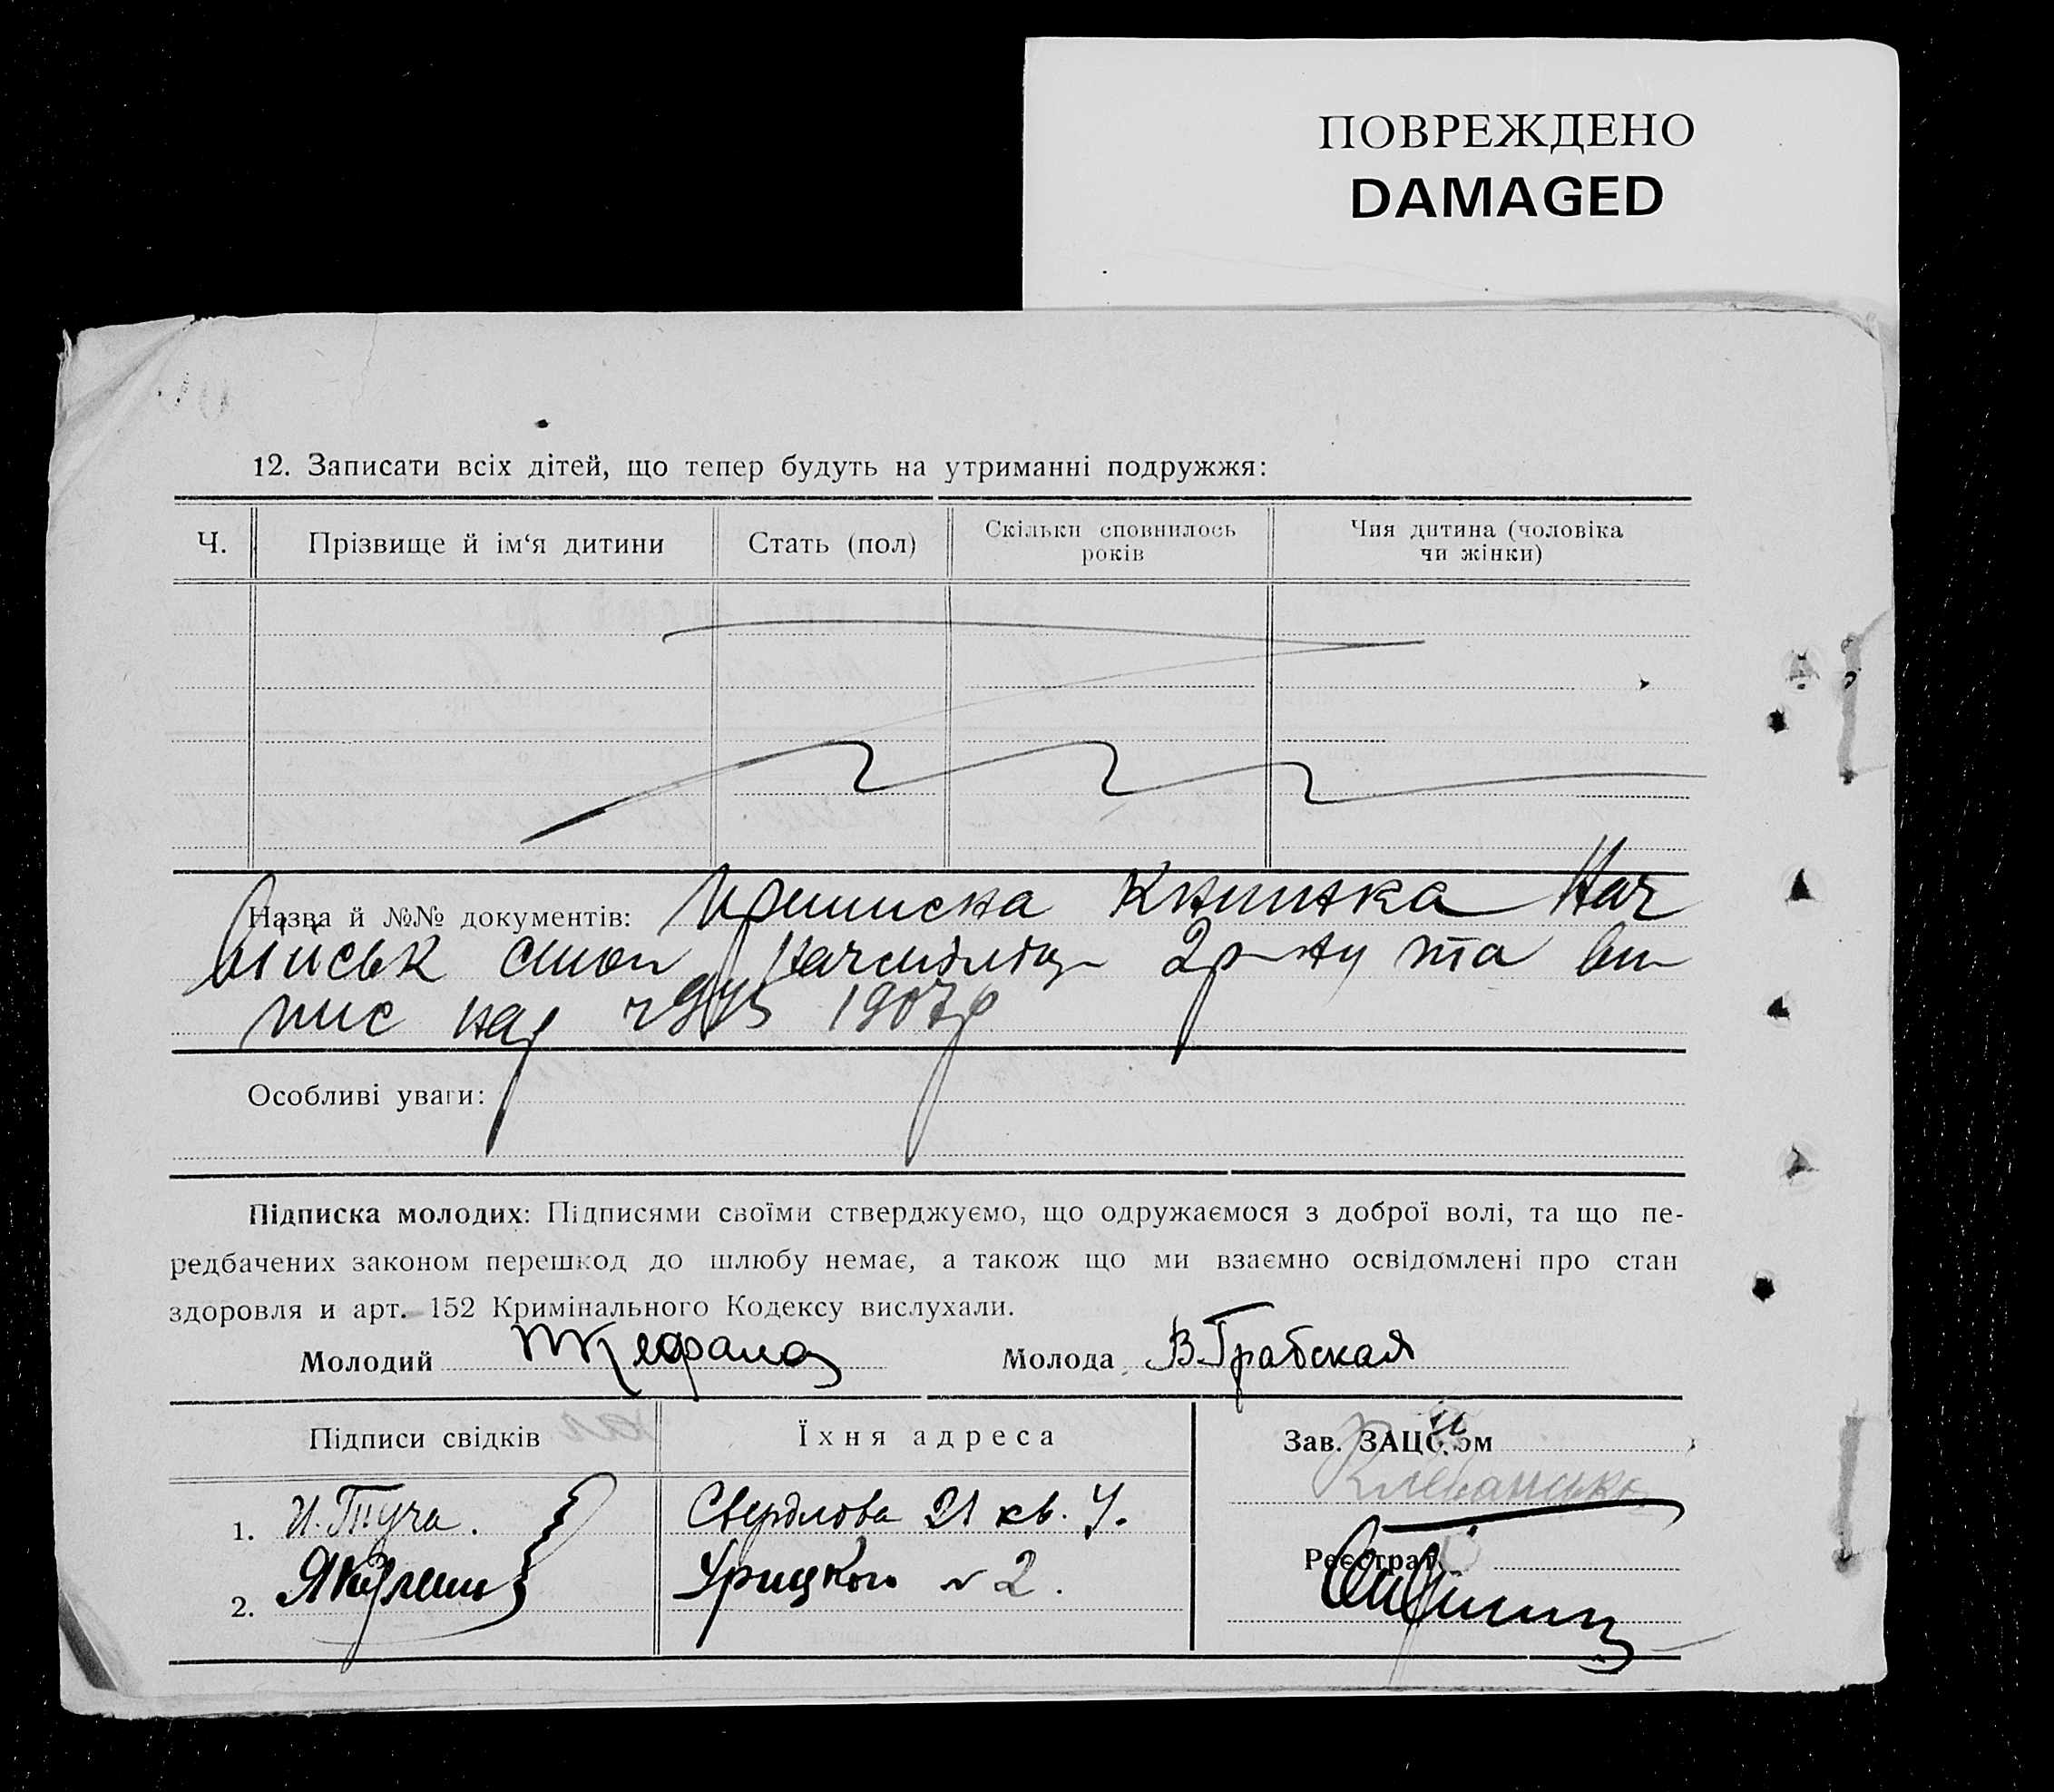 ПОВРЕЖДЕНО
DAMAGED
12. Записати всіх дітей, що тепер будуть на утриманні подружжя:
Ч.
Прізвище й ім‘я дитини
Стать (пол)
Скільки сповнилось
років
Чия дитина (чоловіка
чи жінки)
Назва й №№ документів: Приписна Книжка Нач
військ стол 2р-ну та ви
пис 1907р
Особливі уваги:
Підписка молодих: Підписями своїми стверджуємо, що одружаємося з доброї волі, та що пе-
редбачених законом перешкод до шлюбу немає, а також що ми взаємно освідомлені про стан
здоровля и арт. 152 Кримінального Кодексу вислухали.
Молодий
Молода В. Грабская
Підписи свідків
Їхня адреса
Зав. ЗАЦС‘ом
1. И. Туча. Свердлова 21 кв. 4.
Реєстрат
2. Урицкого №2.